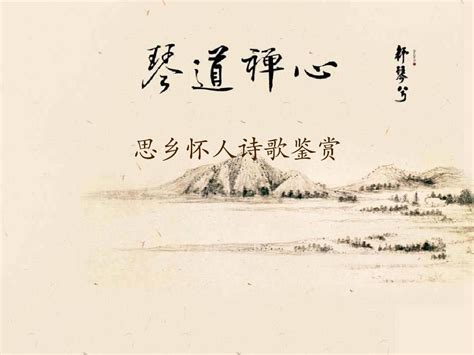 琴道禅心
思乡怀人诗歌鉴赏